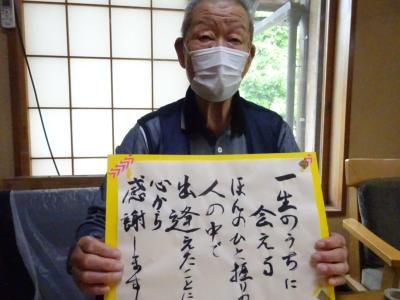 一生のうちに
会える
ほんのひと握りの
人の中で
出逢えたことに
心から
感謝します